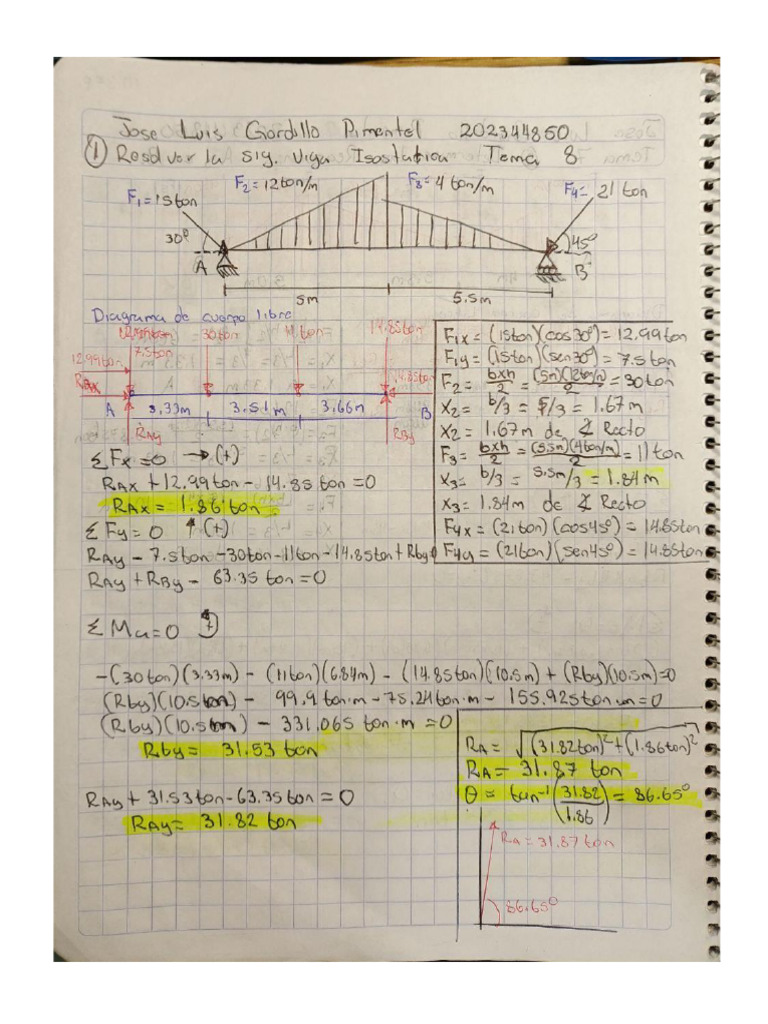 Jose Luis Gordillo Pimentel 202344850
① Resolver la sig. viga Isostatica Tema 8
F₁=15ton F₂=12ton/m F₃=4 ton/m F₄= 21 ton
30° 45°
A B
5m 5.5m
Diagrama de cuerpo libre
30ton 11ton 14.85ton
7.5ton
12.99ton 14.85ton
RAx
A 3.33m 3.51m 3.66m B
RAy RBy
F₁x = (15ton)(cos30°) = 12.99ton
F₁y = (15ton)(sen30°) = 7.5ton
F₂ = bxh/2 = (5m)(12ton/m)/2 = 30ton
X₂ = b/3 = 5/3 = 1.67m
X₂ = 1.67m de ∡ Recto
F₃ = bxh/2 = (5.5m)(4ton/m)/2 = 11ton
X₃ = b/3 = 5.5m/3 = 1.84m
X₃ = 1.84m de ∡ Recto
F₄x = (21ton)(cos45°) = 14.85ton
F₄y = (21ton)(sen45°) = 14.85ton
ΣFx=0 → (+)
RAx + 12.99ton - 14.85ton = 0
RAx = 1.86 ton
ΣFy = 0 ↑ (+)
RAy - 7.5ton - 30ton - 11ton - 14.85ton + Rby=0
RAy + RBy - 63.35 ton = 0
ΣMa=0 +
-(30ton)(3.33m) - (11ton)(6.84m) - (14.85ton)(10.5m) + (Rby)(10.5m)=0
(Rby)(10.5m) - 99.9 ton·m - 75.24ton·m - 155.925ton·m = 0
(Rby)(10.5m) - 331.065 ton·m = 0
Rby = 31.53 ton
RAy + 31.53ton - 63.35ton = 0
RAy = 31.82 ton
RA = √(31.82ton)² + (1.86ton)²
RA = 31.87 ton
θ = tan⁻¹(31.82/1.86) = 86.65°
Ra = 31.87ton
86.65°